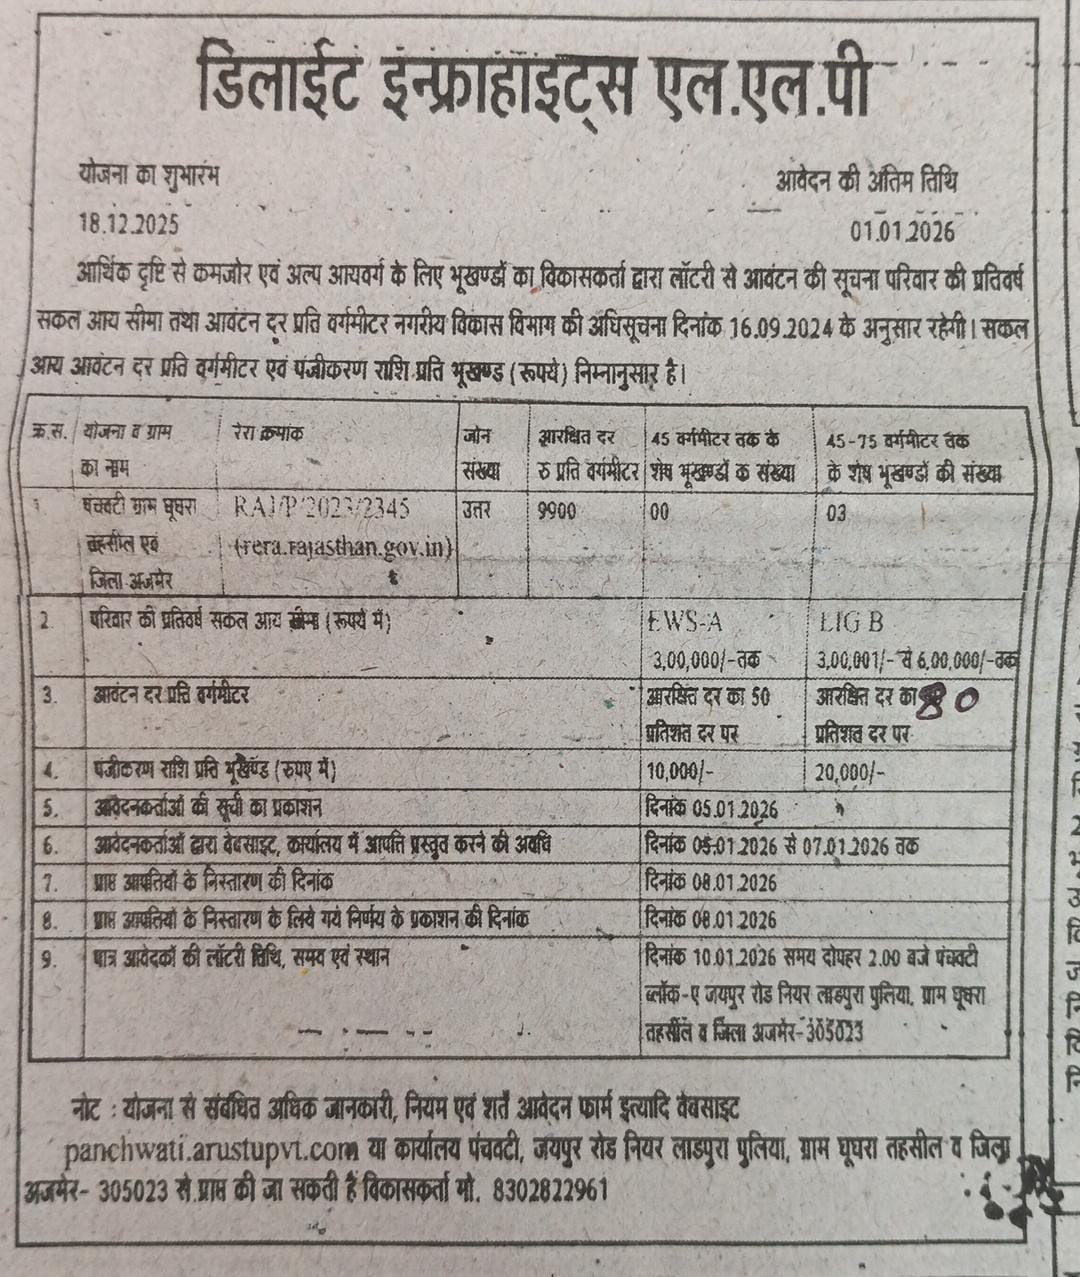 डिलाईट इन्फ्राहाइट्स एल.एल.पी
योजना का शुभारंभ आवेदन की अंतिम तिथि
18.12.2025 01.01.2026
आर्थिक दृष्टि से कमजोर एवं अल्प आयवर्ग के लिए भूखण्डों का विकासकर्ता द्वारा लॉटरी से आवंटन की सूचना परिवार की प्रतिवर्ष
सकल आय सीमा तथा आवंटन दर प्रति वर्गमीटर नगरीय विकास विभाग की अधिसूचना दिनांक 16.09.2024 के अनुसार रहेगी। सकल
आय आवंटन दर प्रति वर्गमीटर एवं पंजीकरण राशि प्रति भूखण्ड (रूपये) निम्नानुसार है।
क्र.स. योजना व ग्राम रेरा क्रमांक जोन आरक्षित दर 45 वर्गमीटर तक के 45-75 वर्गमीटर तक
का नाम संख्या रु प्रति वर्गमीटर शेष भूखण्डों क संख्या के शेष भूखण्डों की संख्या
1. पंचवटी ग्राम घूघरा RAJ/P/2023/2345 उतर 9900 00 03
तहसील एवं (rera.rajasthan.gov.in)
जिला अजमेर
2. परिवार की प्रतिवर्ष सकल आय सीमा (रूपये में) EWS-A LIG B
3,00,000/-तक 3,00,001/- से 6,00,000/-तक
3. आवंटन दर प्रति वर्गमीटर आरक्षित दर का 50 आरक्षित दर का 80
प्रतिशत दर पर प्रतिशत दर पर
4. पंजीकरण राशि प्रति भूखण्ड (रुपए में) 10,000/- 20,000/-
5. आवेदनकर्ताओं की सूची का प्रकाशन दिनांक 05.01.2026
6. आवेदनकर्ताओं द्वारा वेबसाइट, कार्यालय में आपति प्रस्तुत करने की अवधि दिनांक 05.01.2026 से 07.01.2026 तक
7. प्राप्त आपतियों के निस्तारण की दिनांक दिनांक 08.01.2026
8. प्राप्त आपतियों के निस्तारण के लिये गये निर्णय के प्रकाशन की दिनांक दिनांक 08.01.2026
9. पात्र आवेदकों की लॉटरी तिथि, समय एवं स्थान दिनांक 10.01.2026 समय दोपहर 2.00 बजे पंचवटी
ब्लॉक-ए जयपुर रोड नियर लाडपुरा पुलिया, ग्राम घूघरा
तहसील व जिला अजमेर-305023
नोट : योजना से संबंधित अधिक जानकारी, नियम एवं शर्ते आवेदन फार्म इत्यादि वेबसाइट
panchwati.arustupvt.com या कार्यालय पंचवटी, जयपुर रोड नियर लाडपुरा पुलिया, ग्राम घूघरा तहसील व जिला
अजमेर- 305023 से प्राप्त की जा सकती है विकासकर्ता मो. 8302822961